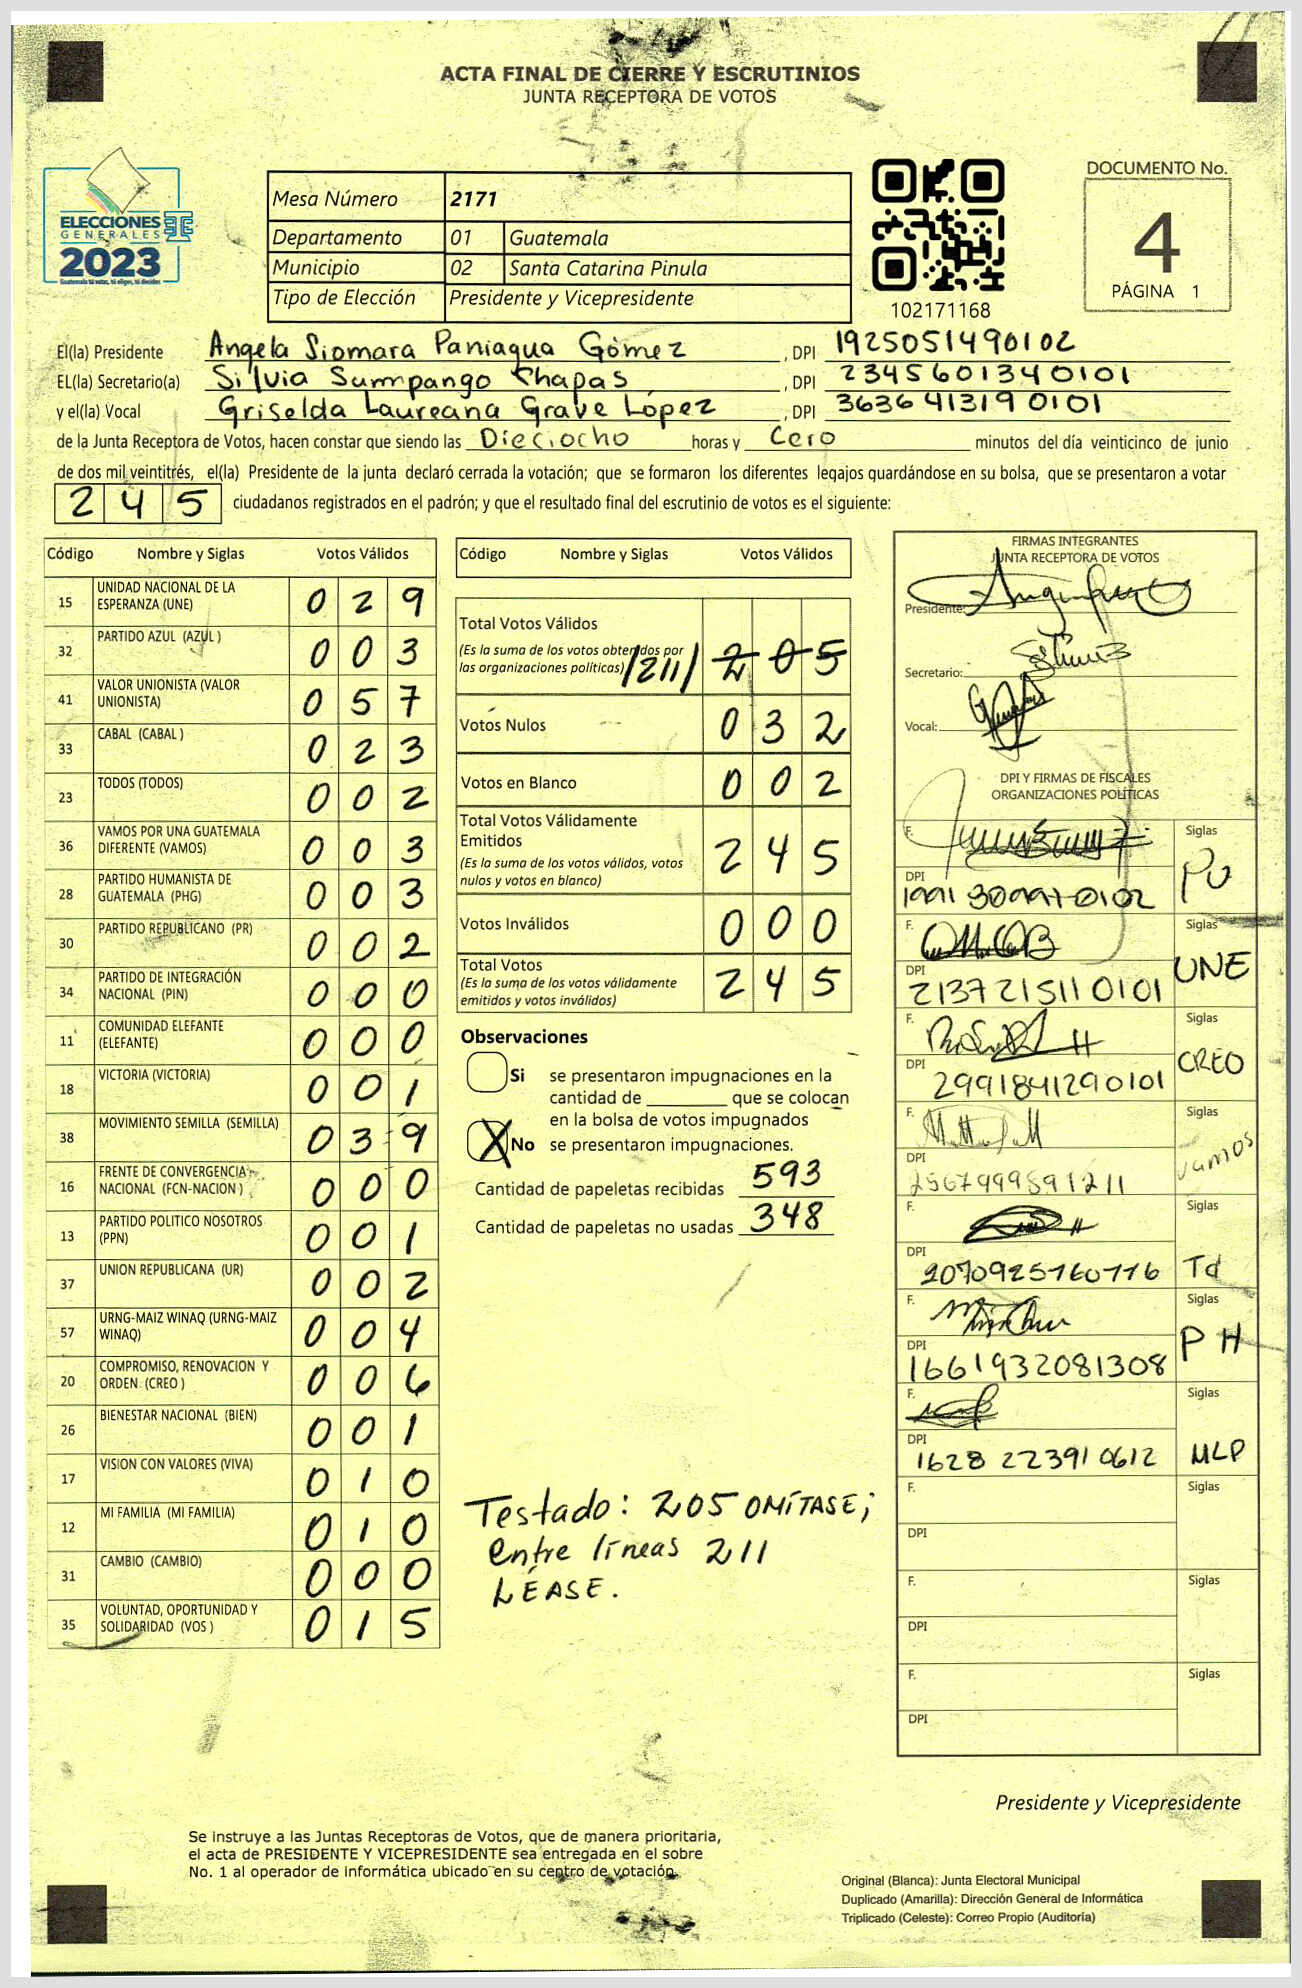 ACTA FINAL DE CIERRE Y ESCRUTINIOS
JUNTA RECEPTORA DE VOTOS
ELECCIONES
GENERALES
2023
Guatemala tú votas, tú eliges, tú decides
Mesa Número 2171
Departamento 01 Guatemala
Municipio 02 Santa Catarina Pinula
Tipo de Elección Presidente y Vicepresidente
102171168
DOCUMENTO No.
4
PÁGINA 1
El(la) Presidente Angela Siomara Paniagua Gómez , DPI 1925051490102
EL(la) Secretario(a) Silvia Sumpango Chapas , DPI 2345601340101
y el(la) Vocal Griselda Laureana Grave López , DPI 3636413190101
de la Junta Receptora de Votos, hacen constar que siendo las Dieciocho horas y Cero minutos del día veinticinco de junio
de dos mil veintitrés, el(la) Presidente de la junta declaró cerrada la votación; que se formaron los diferentes legajos guardándose en su bolsa, que se presentaron a votar
245 ciudadanos registrados en el padrón; y que el resultado final del escrutinio de votos es el siguiente:
Código Nombre y Siglas Votos Válidos
15 UNIDAD NACIONAL DE LA ESPERANZA (UNE) 029
32 PARTIDO AZUL (AZUL ) 003
41 VALOR UNIONISTA (VALOR UNIONISTA) 057
33 CABAL (CABAL ) 023
23 TODOS (TODOS) 002
36 VAMOS POR UNA GUATEMALA DIFERENTE (VAMOS) 003
28 PARTIDO HUMANISTA DE GUATEMALA (PHG) 003
30 PARTIDO REPUBLICANO (PR) 002
34 PARTIDO DE INTEGRACIÓN NACIONAL (PIN) 000
11 COMUNIDAD ELEFANTE (ELEFANTE) 000
18 VICTORIA (VICTORIA) 001
38 MOVIMIENTO SEMILLA (SEMILLA) 039
16 FRENTE DE CONVERGENCIA NACIONAL (FCN-NACION ) 000
13 PARTIDO POLITICO NOSOTROS (PPN) 001
37 UNION REPUBLICANA (UR) 002
57 URNG-MAIZ WINAQ (URNG-MAIZ WINAQ) 004
20 COMPROMISO, RENOVACION Y ORDEN (CREO ) 006
26 BIENESTAR NACIONAL (BIEN) 001
17 VISION CON VALORES (VIVA) 010
12 MI FAMILIA (MI FAMILIA) 010
31 CAMBIO (CAMBIO) 000
35 VOLUNTAD, OPORTUNIDAD Y SOLIDARIDAD (VOS ) 015
Código Nombre y Siglas Votos Válidos
Total Votos Válidos
(Es la suma de los votos obtenidos por
las organizaciones políticas) /211/ 205
Votos Nulos 032
Votos en Blanco 002
Total Votos Válidamente
Emitidos 245
(Es la suma de los votos válidos, votos
nulos y votos en blanco)
Votos Inválidos 000
Total Votos 245
(Es la suma de los votos válidamente
emitidos y votos inválidos)
Observaciones
Si se presentaron impugnaciones en la
cantidad de ________ que se colocan
en la bolsa de votos impugnados
X No se presentaron impugnaciones.
Cantidad de papeletas recibidas 593
Cantidad de papeletas no usadas 348
Testado: 205 OMÍTASE;
entre líneas 211
LÉASE.
FIRMAS INTEGRANTES
JUNTA RECEPTORA DE VOTOS
Presidente:
Secretario:
Vocal:
DPI Y FIRMAS DE FISCALES
ORGANIZACIONES POLÍTICAS
F. Siglas PU
DPI
F. Siglas UNE
DPI 2137215110101
F. Siglas CREO
DPI 2991841290101
F. Siglas vamos
DPI
F. Siglas Td
DPI
F. Siglas PH
DPI 1661932081308
F. Siglas MLP
DPI 1628 22391 0612
F. Siglas
DPI
F. Siglas
DPI
F. Siglas
DPI
Presidente y Vicepresidente
Se instruye a las Juntas Receptoras de Votos, que de manera prioritaria,
el acta de PRESIDENTE Y VICEPRESIDENTE sea entregada en el sobre
No. 1 al operador de informática ubicado en su centro de votación.
Original (Blanca): Junta Electoral Municipal
Duplicado (Amarilla): Dirección General de Informática
Triplicado (Celeste): Correo Propio (Auditoría)